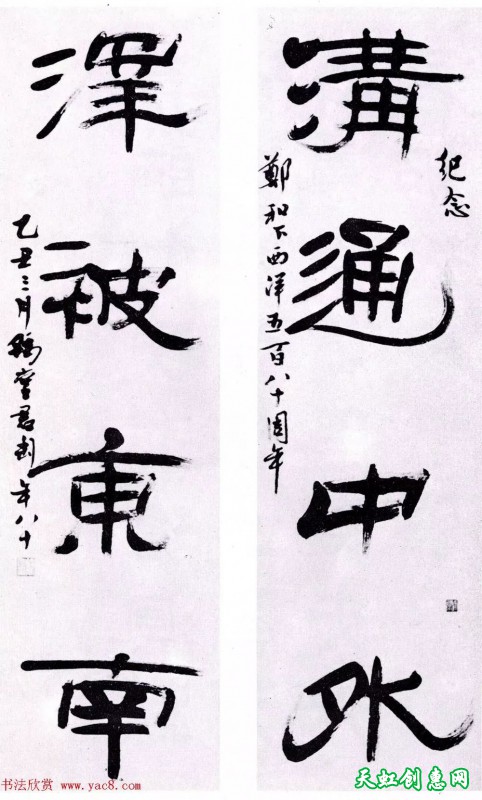 紀念
溝通中外
鄭和下西洋五百八十周年
澤被東南
乙丑三月君匋年八十
书法欣赏 www.yac8.com
天虹创意网